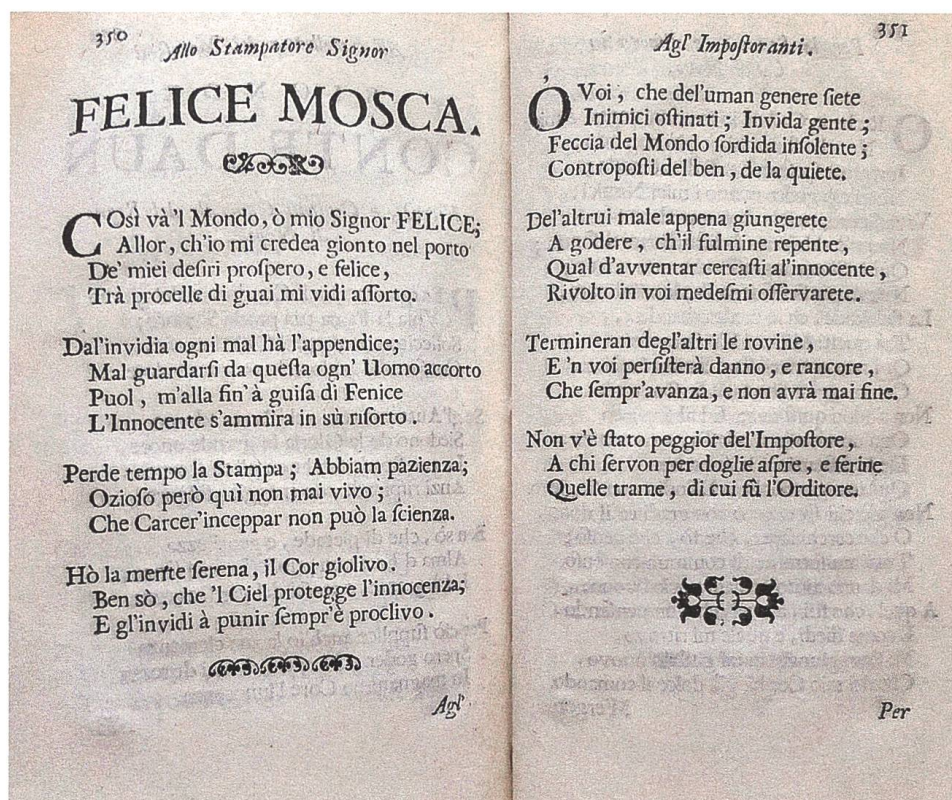 350
Allo Stampatore Signor
FELICE MOSCA.
COsì và 'l Mondo, ò mio Signor FELICE;
Allor, ch'io mi credea gionto nel porto
De' miei deſiri proſpero, e felice,
Trà procelle di guai mi vidi aſſorto.
Dal'invidia ogni mal hà l'appendice;
Mal guardarſi da queſta ogn' Uomo accorto
Puol, m'alla fin'à guiſa di Fenice
L'Innocente s'ammira in sù riſorto.
Perde tempo la Stampa; Abbiam pazienza;
Ozioſo però quì non mai vivo;
Che Carcer'inceppar non può la ſcienza.
Hò la mente ſerena, il Cor giolivo.
Ben sò, che 'l Ciel protegge l'innocenza;
E gl'invidi à punir ſempr'è proclivo.
Agl'
351
Agl' Impoſtoranti.
O Voi, che del'uman genere ſiete
Inimici oſtinati; Invida gente;
Feccia del Mondo ſordida inſolente;
Contropoſti del ben, de la quiete.
Del'altrui male appena giungerete
A godere, ch'il fulmine repente,
Qual d'avventar cercaſti al'innocente,
Rivolto in voi medeſmi oſſervarete.
Termineran degl'altri le rovine,
E 'n voi perſiſterà danno, e rancore,
Che ſempr'avanza, e non avrà mai fine.
Non v'è ſtato peggior del'Impoſtore,
A chi ſervon per doglie aſpre, e ferine
Quelle trame, di cui fù l'Orditore.
Per